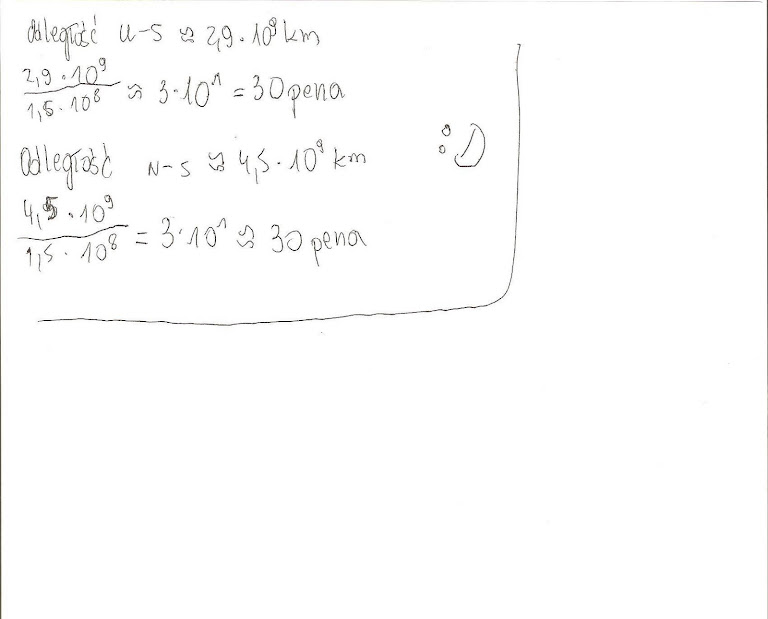 Odległość U-S ≈ 2,9 · 10⁹ km
2,9 · 10⁹ / 1,5 · 10⁸ ≈ 3 · 10¹ = 30 pena
Odległość N-S ≈ 4,5 · 10⁹ km
4,5 · 10⁹ / 1,5 · 10⁸ = 3 · 10¹ ≈ 30 pena
:D